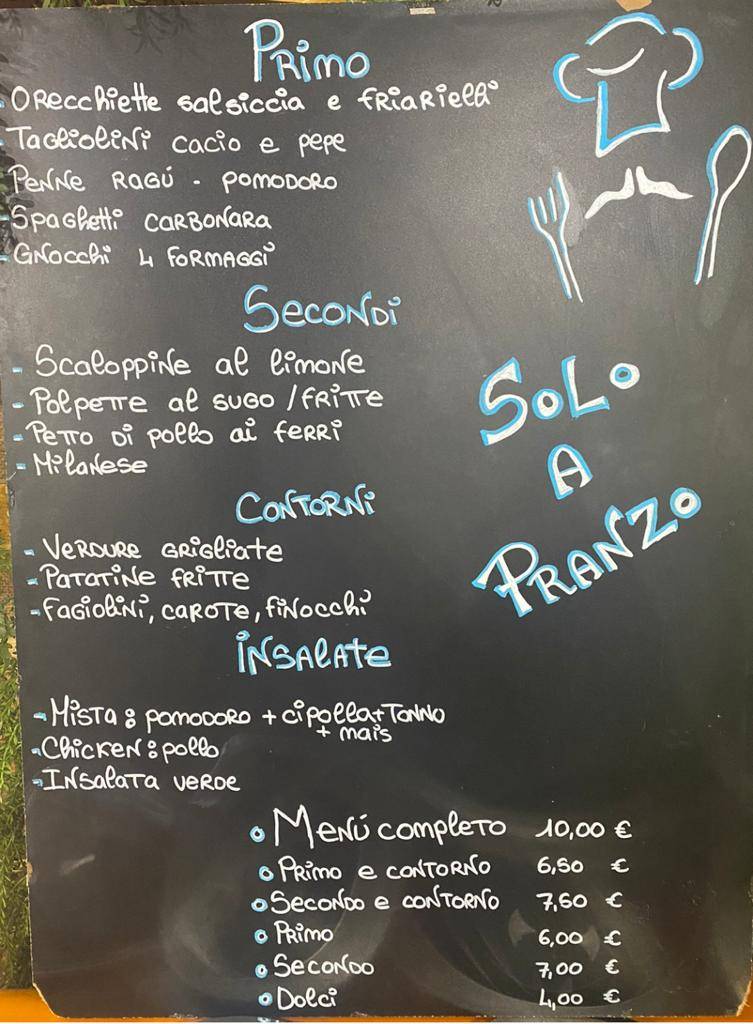 Primo
- Orecchiette salsiccia e friarielli
- Tagliolini cacio e pepe
Penne ragú - pomodoro
- Spaghetti carbonara
- Gnocchi 4 formaggi
Secondi
- Scaloppine al limone
- Polpette al sugo / fritte
- Petto di pollo ai ferri
- Milanese
Solo
a
pranzo
Contorni
- Verdure grigliate
- Patatine fritte
- Fagiolini, carote, finocchi
Insalate
- Mista : pomodoro + cipolla + tonno
+ mais
- Chicken : pollo
- Insalata verde
Menú completo 10,00 €
Primo e contorno 6,50 €
Secondo e contorno 7,50 €
Primo 6,00 €
Secondo 7,00 €
Dolci 4,00 €